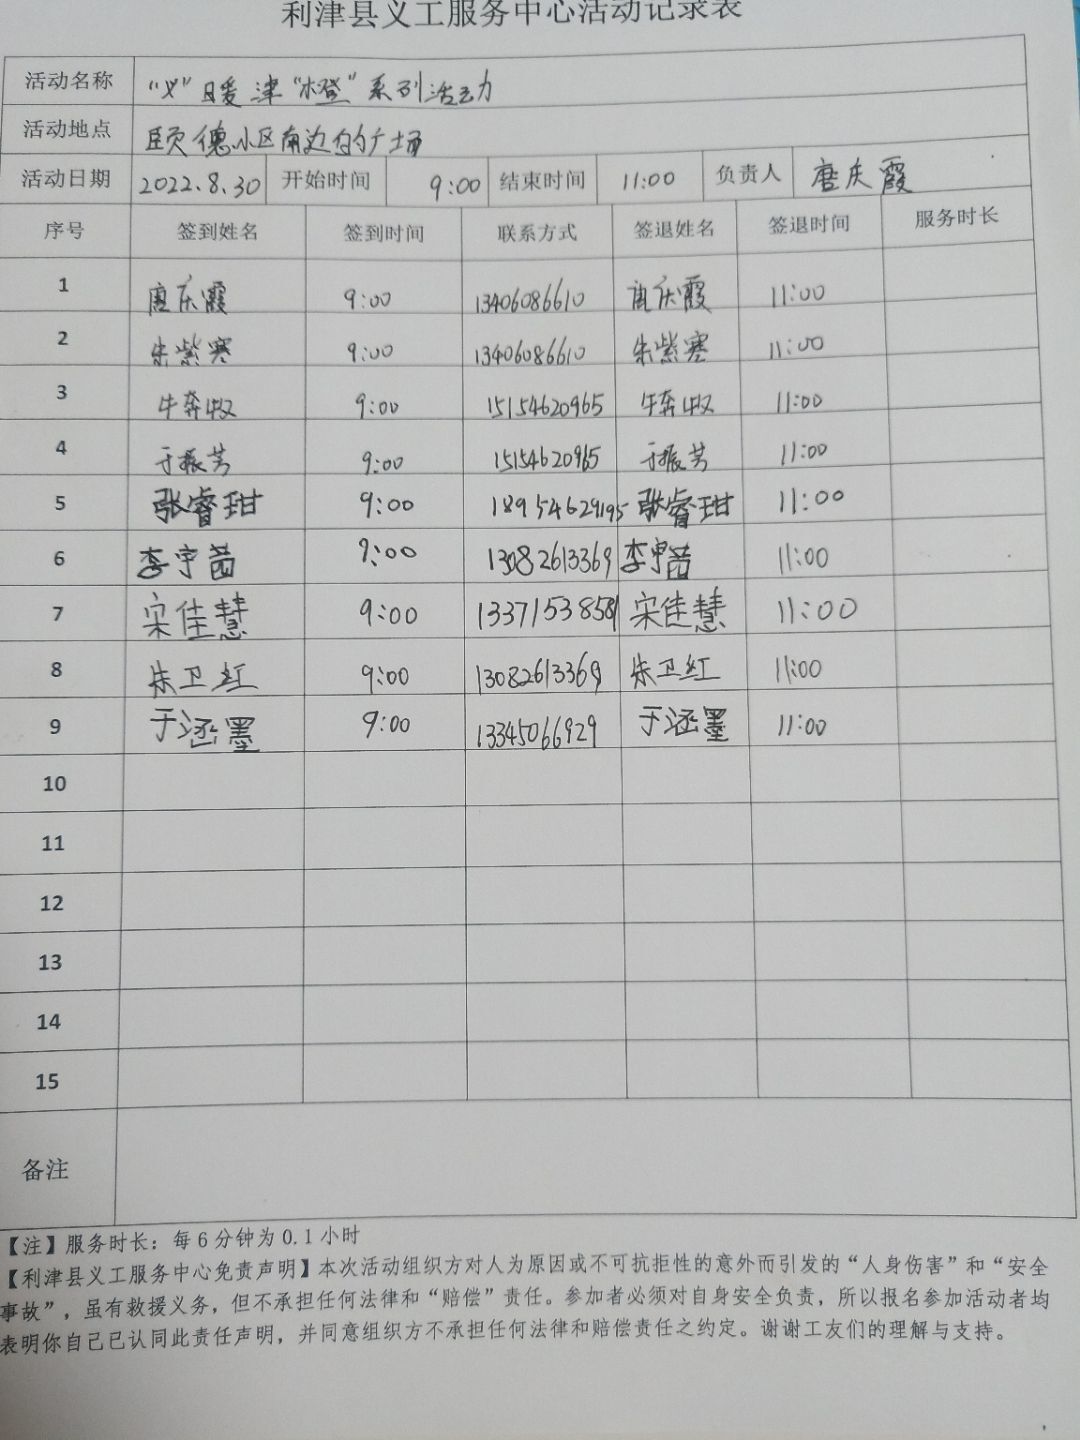 利津县义工服务中心活动记录表
活动名称 “义”暖津“橙”系列活动
活动地点 颐德小区南边的广场
活动日期 2022.8.30 开始时间 9:00 结束时间 11:00 负责人 唐庆霞
序号 签到姓名 签到时间 联系方式 签退姓名 签退时间 服务时长
1 唐庆霞 9:00 13406086610 唐庆霞 11:00
2 朱紫骞 9:00 13406086610 朱紫骞 11:00
3 牛奔驭 9:00 15154620965 牛奔驭 11:00
4 于振芳 9:00 15154620965 于振芳 11:00
5 张睿玵 9:00 18954629195 张睿玵 11:00
6 李宇茜 9:00 13082613369 李宇茜 11:00
7 宋佳慧 9:00 13371538581 宋佳慧 11:00
8 朱卫红 9:00 13082613369 朱卫红 11:00
9 于涵墨 9:00 13345066929 于涵墨 11:00
10
11
12
13
14
15
备注
【注】服务时长：每6分钟为0.1小时
【利津县义工服务中心免责声明】本次活动组织方对人为原因或不可抗拒性的意外而引发的“人身伤害”和“安全
事故”，虽有救援义务，但不承担任何法律和“赔偿”责任。参加者必须对自身安全负责，所以报名参加活动者均
表明你自己已认同此责任声明，并同意组织方不承担任何法律和赔偿责任之约定。谢谢工友们的理解与支持。